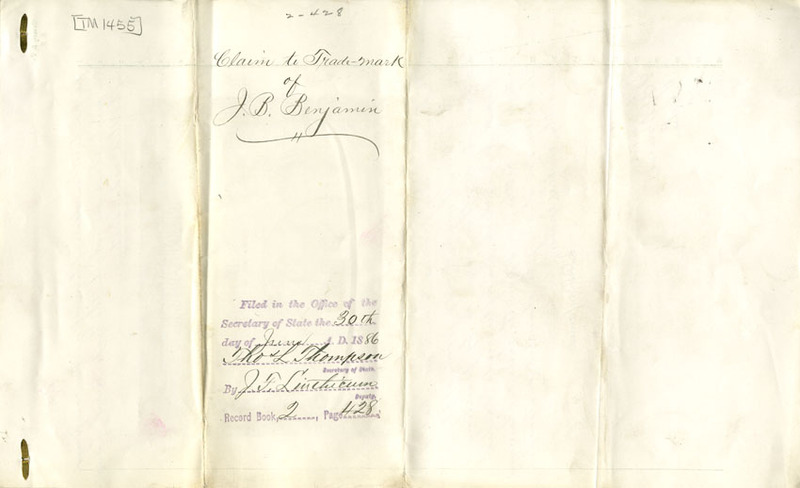 [TM 1455]
2-428
Claim to Trade-mark
of
J. B. Benjamin
Filed in the Office of the
Secretary of State the 30th
day of June A. D. 1886
Thos L Thompson
Secretary of State.
By J. F. Linthicum
Deputy.
Record Book, 2, Page 428